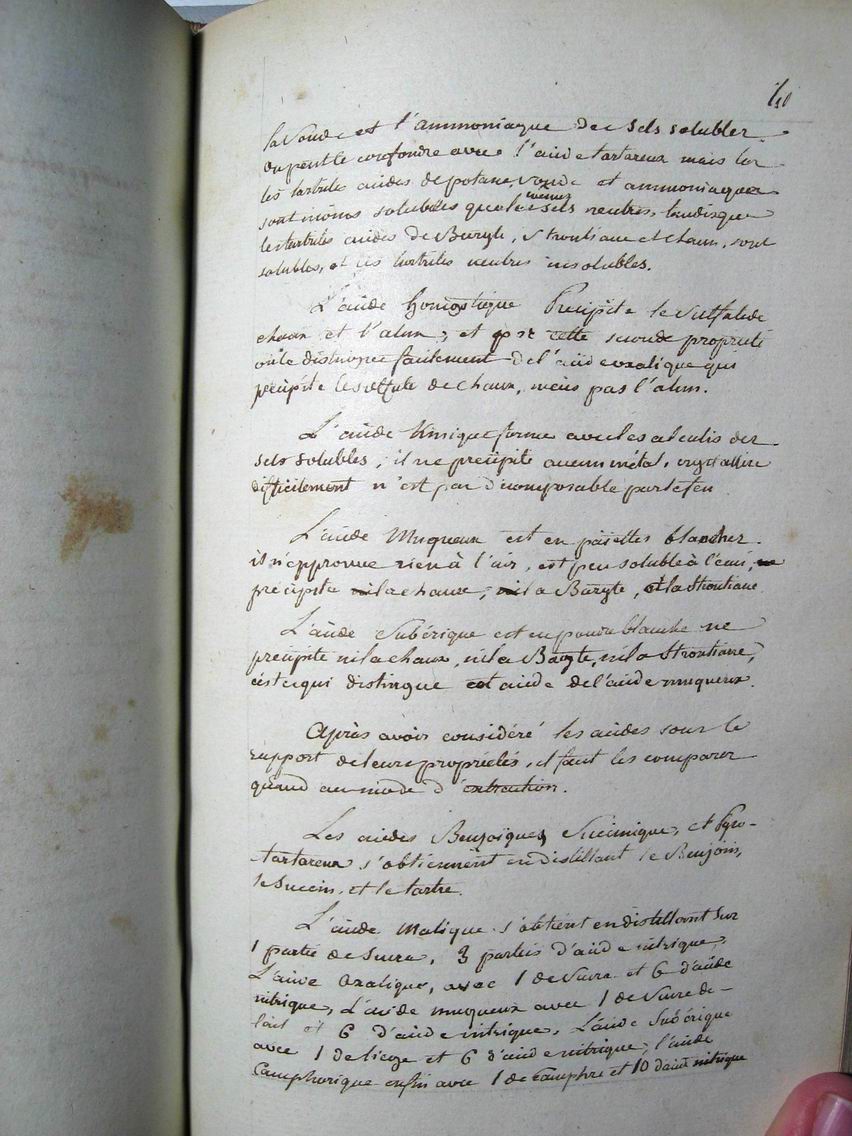 la soude et l'ammoniaque des sels solubles.
on peut le confondre avec l'acide tartareux mais
les tartrites acides de potasse, soude et ammoniaque
sont moins solubles que les mêmes sels neutres, tandisque
les tartrites acides de Baryte, Strontiane et chaux, sont
solubles, et les tartrites neutres insolubles.
L'acide honigstique Precipite le sulfate de
chaux et l'alun, et par cette seconde propriété
on le distingue facilement de l'acide oxalique qui
précipite le sulfate de chaux, mais pas l'alun.
L'acide Kinique forme avec les alcalis des
sels solubles, il ne précipite aucun métal, crystallise
difficilement n'est pas décomposable par le feu
L'acide Muqueux est en paiettes blanches.
il n'epprouve rien à l'air, est peu soluble à l'eau,
précipite la chaux, la Baryte, et la Strontiane.
L'acide Subérique est en poudre blanche ne
précipite ni la chaux, ni la Baryte, ni la Strontiane,
c'est ce qui distingue cet acide de l'acide muqueux.
Après avoir considéré les acides sous le
rapport de leurs propriétés, il faut les comparer
quand au mode d'extraction.
Les acides Benzoïques, Succinique, et Pyro-
tartareux s'obtiennent en distillant le Benjoin,
le succin, et le tartre.
L'acide Malique s'obtient en distillant sur
1 partie de sucre, 3 parties d'acide nitrique,
L'acide Oxalique, avec 1 de sucre et 6 d'acide
nitrique, L'acide muqueux avec 1 de sucre de
lait et 6 d'acide nitrique, L'acide Subérique
avec 1 de liege et 6 d'acide nitrique, l'acide
Camphorique enfin avec 1 de camphre et 10 d'acide nitrique